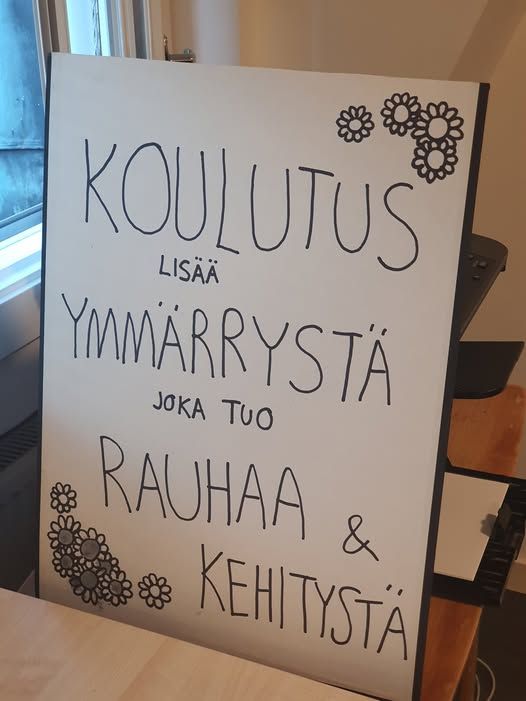 KOULUTUS
LISÄÄ
YMMÄRRYSTÄ
JOKA TUO
RAUHAA &
KEHITYSTÄ